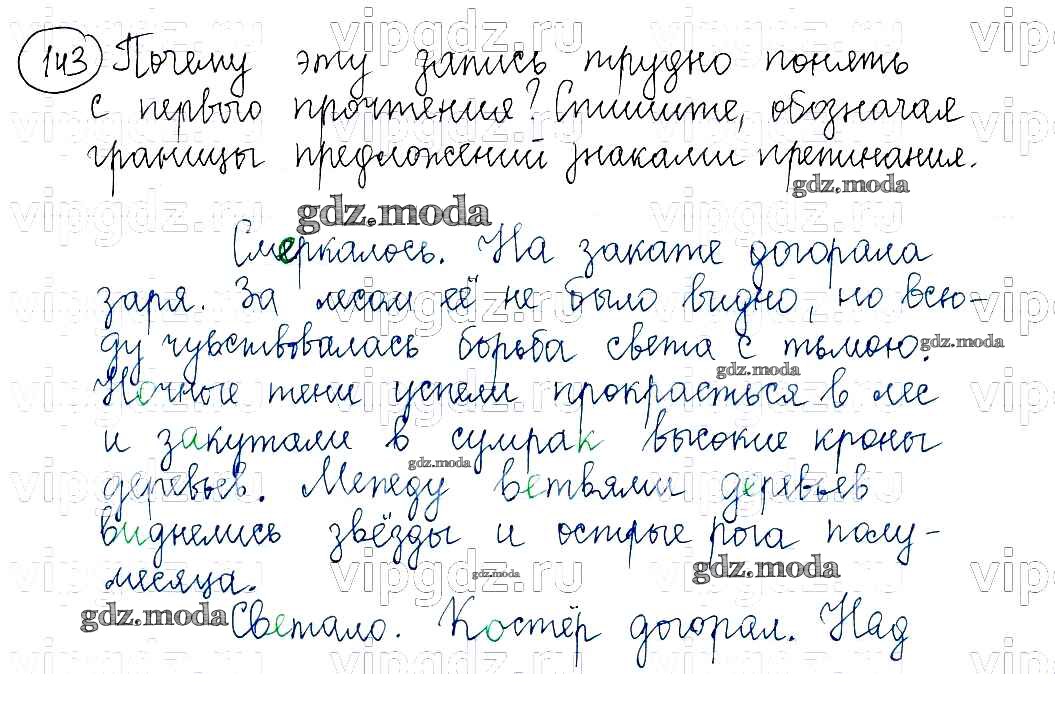 143 Почему эту запись трудно понять
с первого прочтения? Спишите, обозначая
границы предложений знаками препинания.
gdz.moda
gdz.moda
Смеркалось. На закате догорала
заря. За лесом её не было видно, но всю-
ду чувствовалась борьба света с тьмою.
gdz.moda
gdz.moda
Ночные тени успели прокрасться в лес
и закутали в сумрак высокие кроны
gdz.moda
деревьев. Между ветвями деревьев
виднелись звёзды и острые рога полу-
месяца.
gdz.moda
gdz.moda
gdz.moda
Светало. Костёр догорал. Над
vipgdz.ru